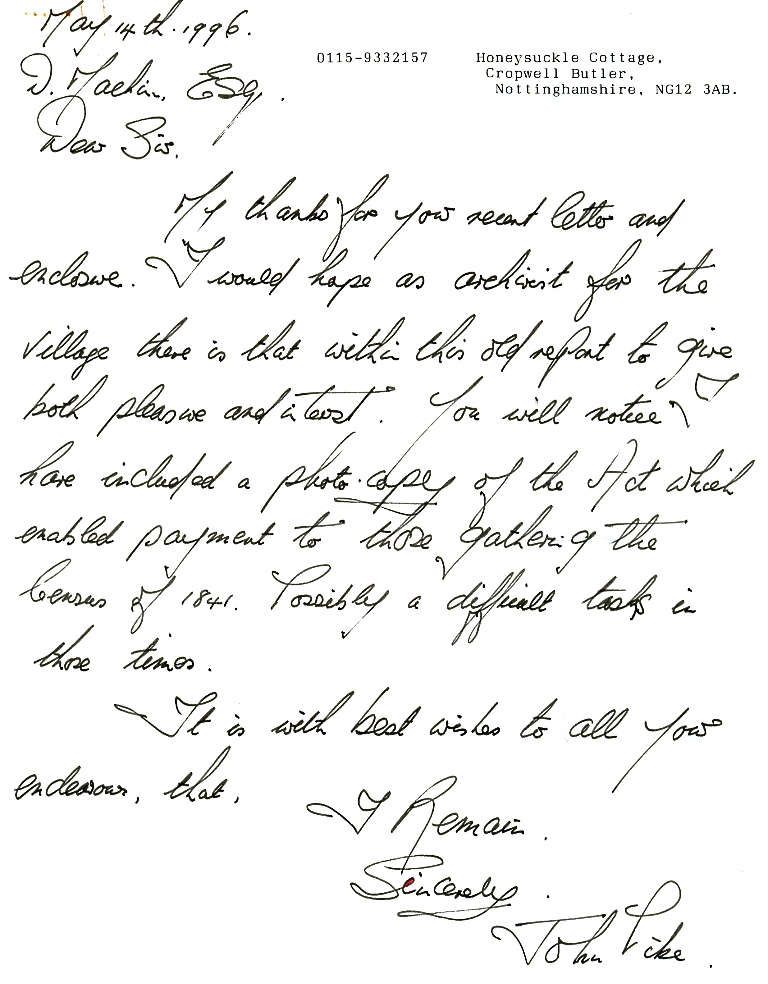 May 14th. 1996.
0115-9332157
Honeysuckle Cottage,
Cropwell Butler,
Nottinghamshire, NG12 3AB.
D. Machin, Esq.
Dear Sir,
My thanks for your recent letter and
enclosure. I would hope as archivist for the
village there is that within this old report to give
both pleasure and interest. You will notice I
have included a photo-copy of the Act which
enabled payment to those gathering the
Census of 1841. Possibly a difficult task in
those times.
It is with best wishes to all your
endeavour, that,
I Remain.
Sincerely.
John Pike.